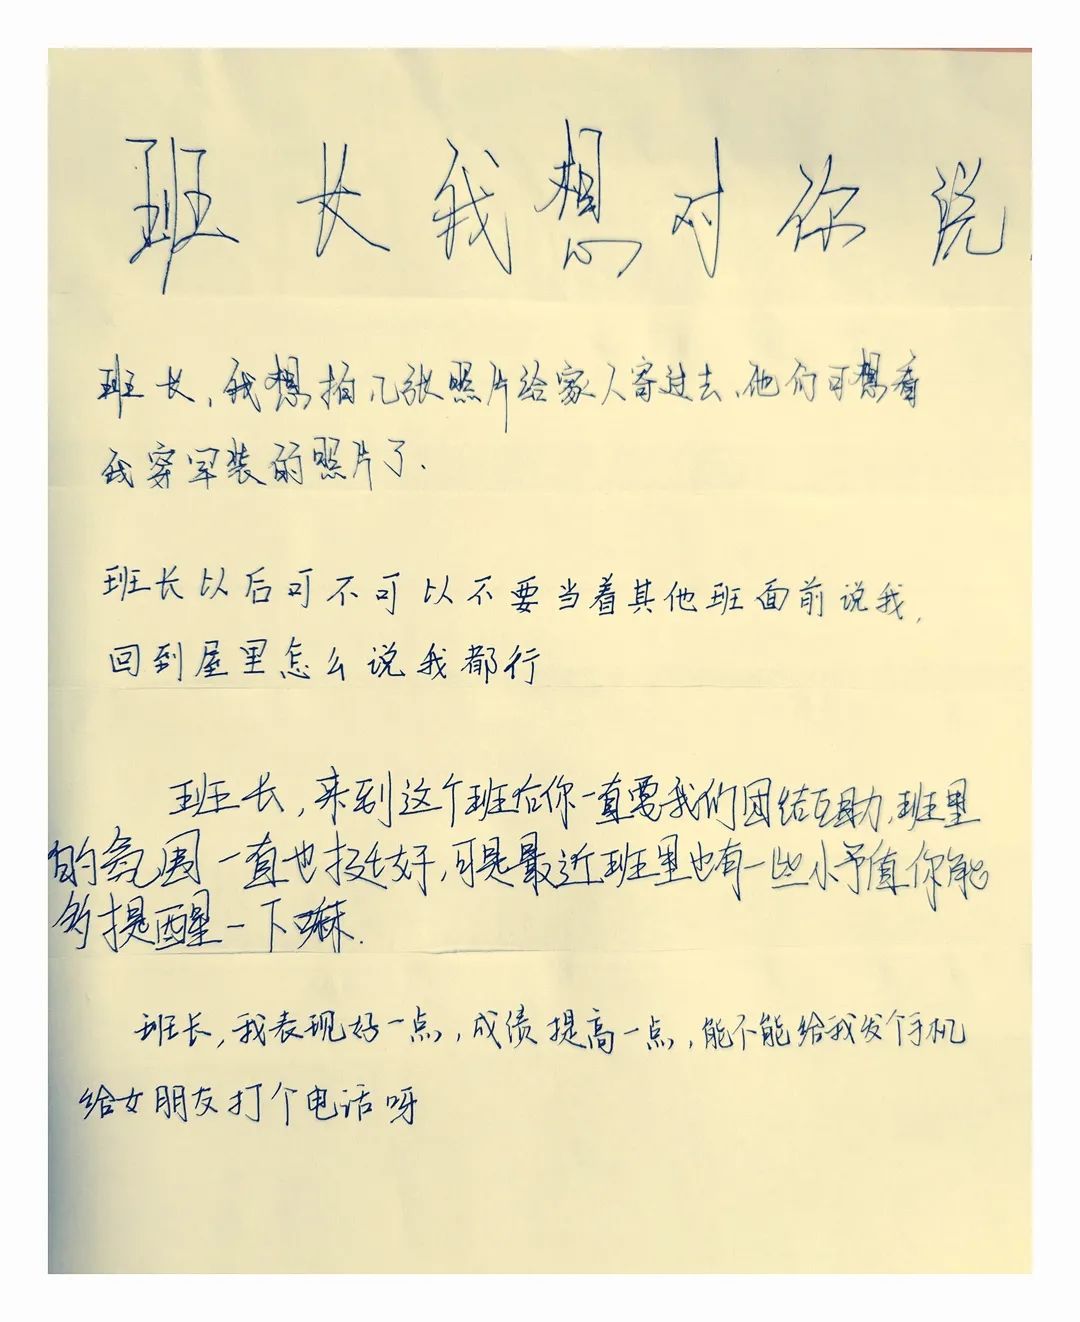 班长我想对你说
班长,我想拍几张照片给家人寄过去,他们可想看
我穿军装的照片了.
班长以后可不可以不要当着其他班面前说我,
回到屋里怎么说我都行
班长,来到这个班后你一直要我们团结互助,班里
的氛围一直也挺好,可是最近班里也有一些小矛盾你能
够提醒一下嘛.
班长,我表现好一点,成绩提高一点,能不能给我发个手机
给女朋友打个电话呀